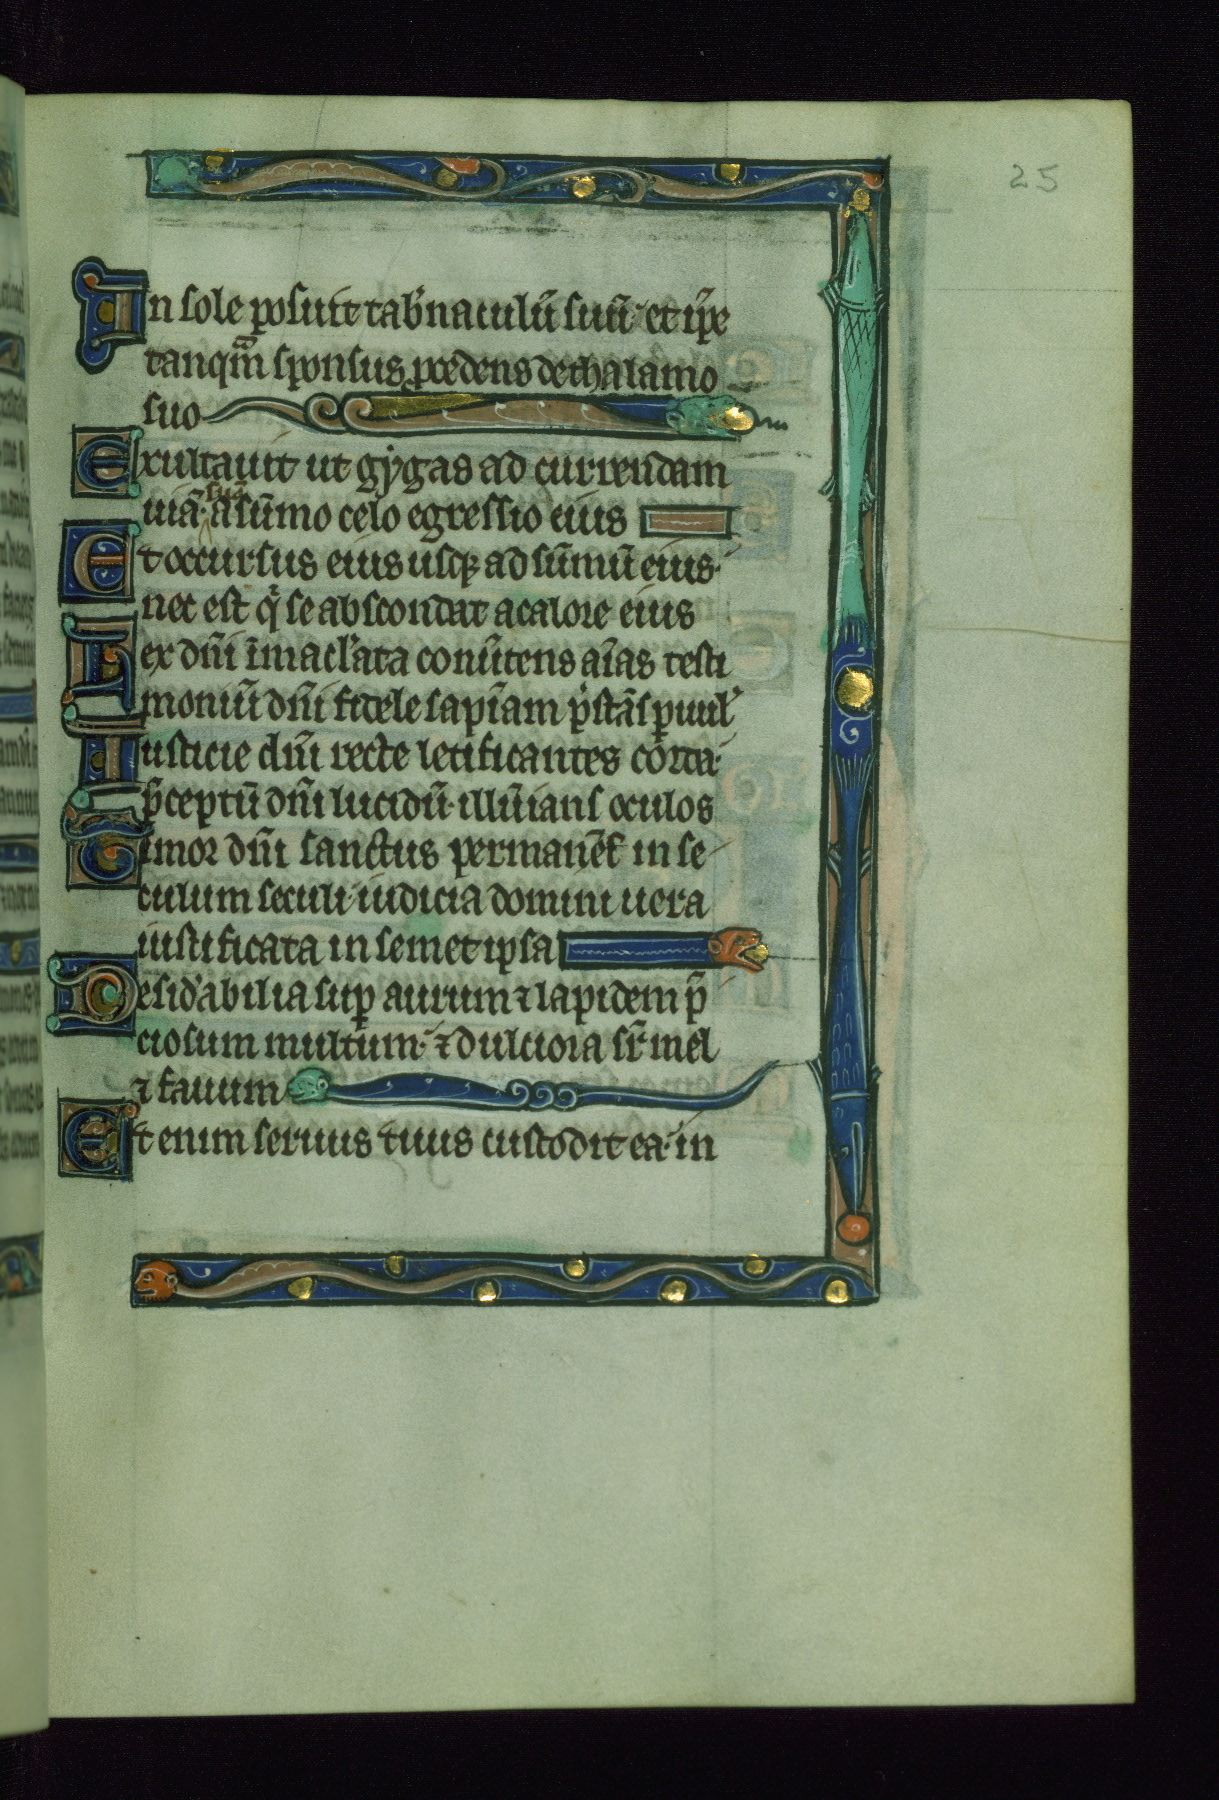 25
In sole posuit tab̾naculū suū· et ip̄e
tanqᵐ sponsus p̱cedens de thalamo
suo
Exultauit ut gẏgas ad currendam
uiā· suā a sūmo celo egressio eius
Et occursus eius usq; ad sūmū eius·
nec est qⁱ se abscondat a calore eius
Lex dn̄i īmac̄lata conūtens aīas testi
moniū dn̄i fidele sapīam p̄stās paruul̾
Iusticie dn̄i recte letificantes corda·
p̄ceptū dn̄i lucidū· illūians oculos
Timor dn̄i sanctus permanēs in se
culum seculi· iudicia domini uera
iustificata in semet ipsa
Desid̾abilia sup̱ aurum ⁊ lapidem p̄
ciosum multum· ⁊ dulciora sr̄ mel
⁊ fauum
Et enim seruus tuus custodit ea· in